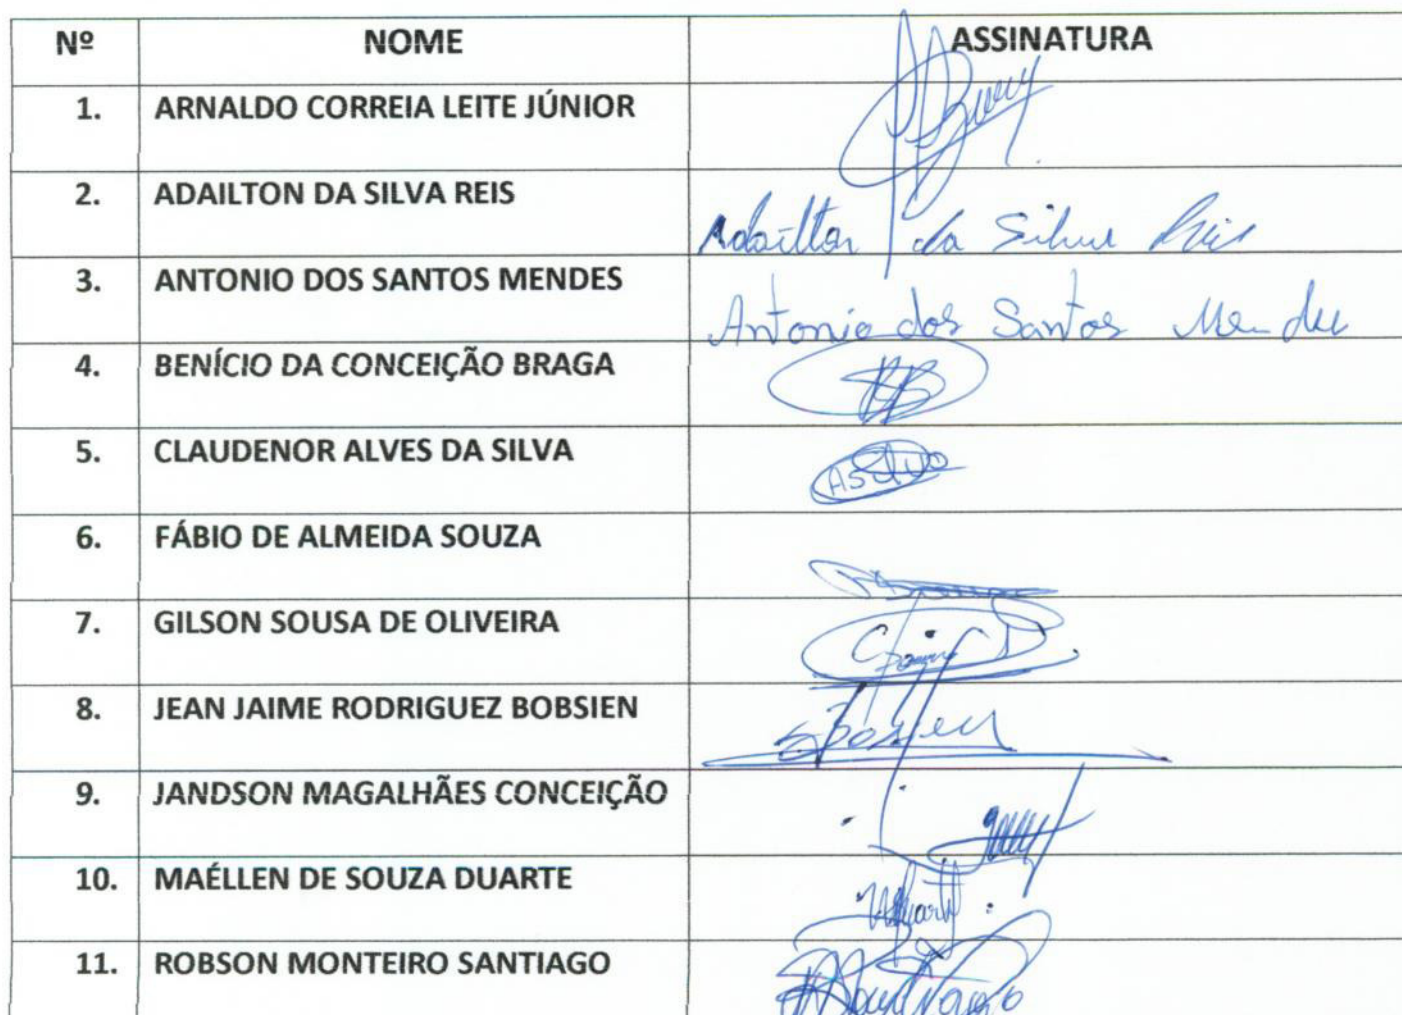 Nº NOME ASSINATURA
1. ARNALDO CORREIA LEITE JÚNIOR
2. ADAILTON DA SILVA REIS Adailton da Silva Reis
3. ANTONIO DOS SANTOS MENDES Antonio dos Santos Mendes
4. BENÍCIO DA CONCEIÇÃO BRAGA
5. CLAUDENOR ALVES DA SILVA ASilva
6. FÁBIO DE ALMEIDA SOUZA
7. GILSON SOUSA DE OLIVEIRA
8. JEAN JAIME RODRIGUEZ BOBSIEN
9. JANDSON MAGALHÃES CONCEIÇÃO
10. MAÉLLEN DE SOUZA DUARTE
11. ROBSON MONTEIRO SANTIAGO